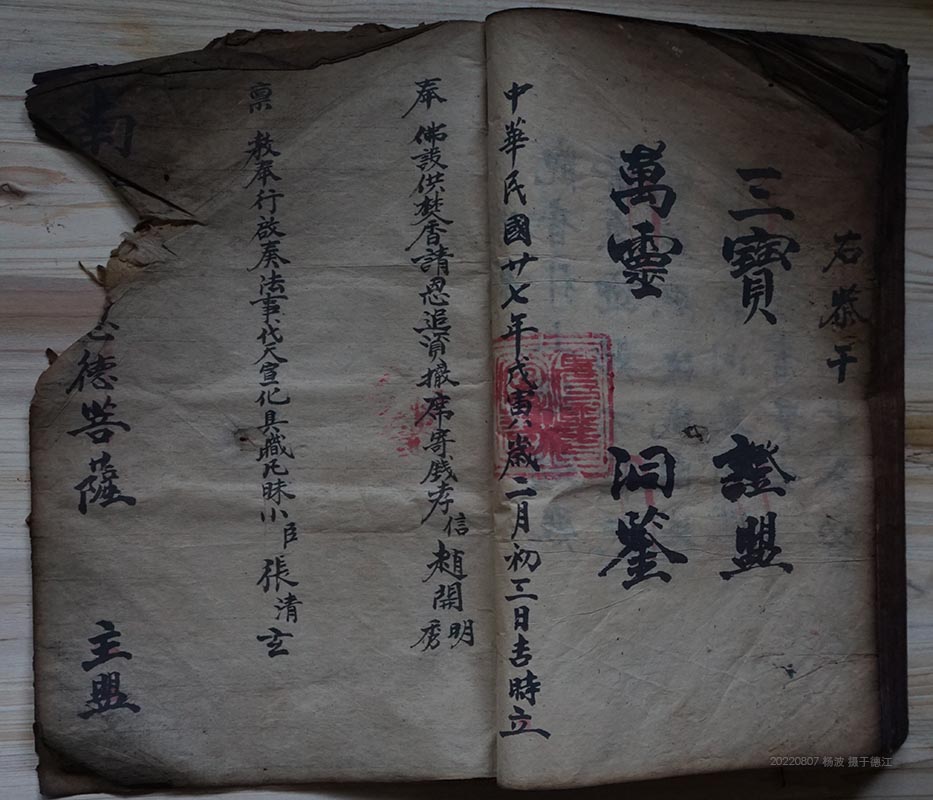 右恭干
三寶 證盟
萬靈 洞鑒
中華民國廿七年戊寅歲二月初三日吉時立
奉 佛設供焚香請恩追資撤席寄錢孝信趙開明秀
稟 教奉行啟奏法事代天宣化具職凡昧小臣張清玄
南 德菩薩 主盟
20220807 杨波 摄于德江